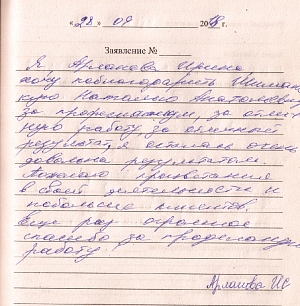 «28» 09 2018 г.
Заявление №
Я Арланова Ирина
хочу поблагодарить
Наталью Анатольевну
за профессионализм, за отлич
ную работу, за отличный
результат, я осталась очень
довольна результатом.
Пожелаю процветания
в своей деятельности и
побольше клиентов.
Еще раз огромное
спасибо за проделанную
работу.